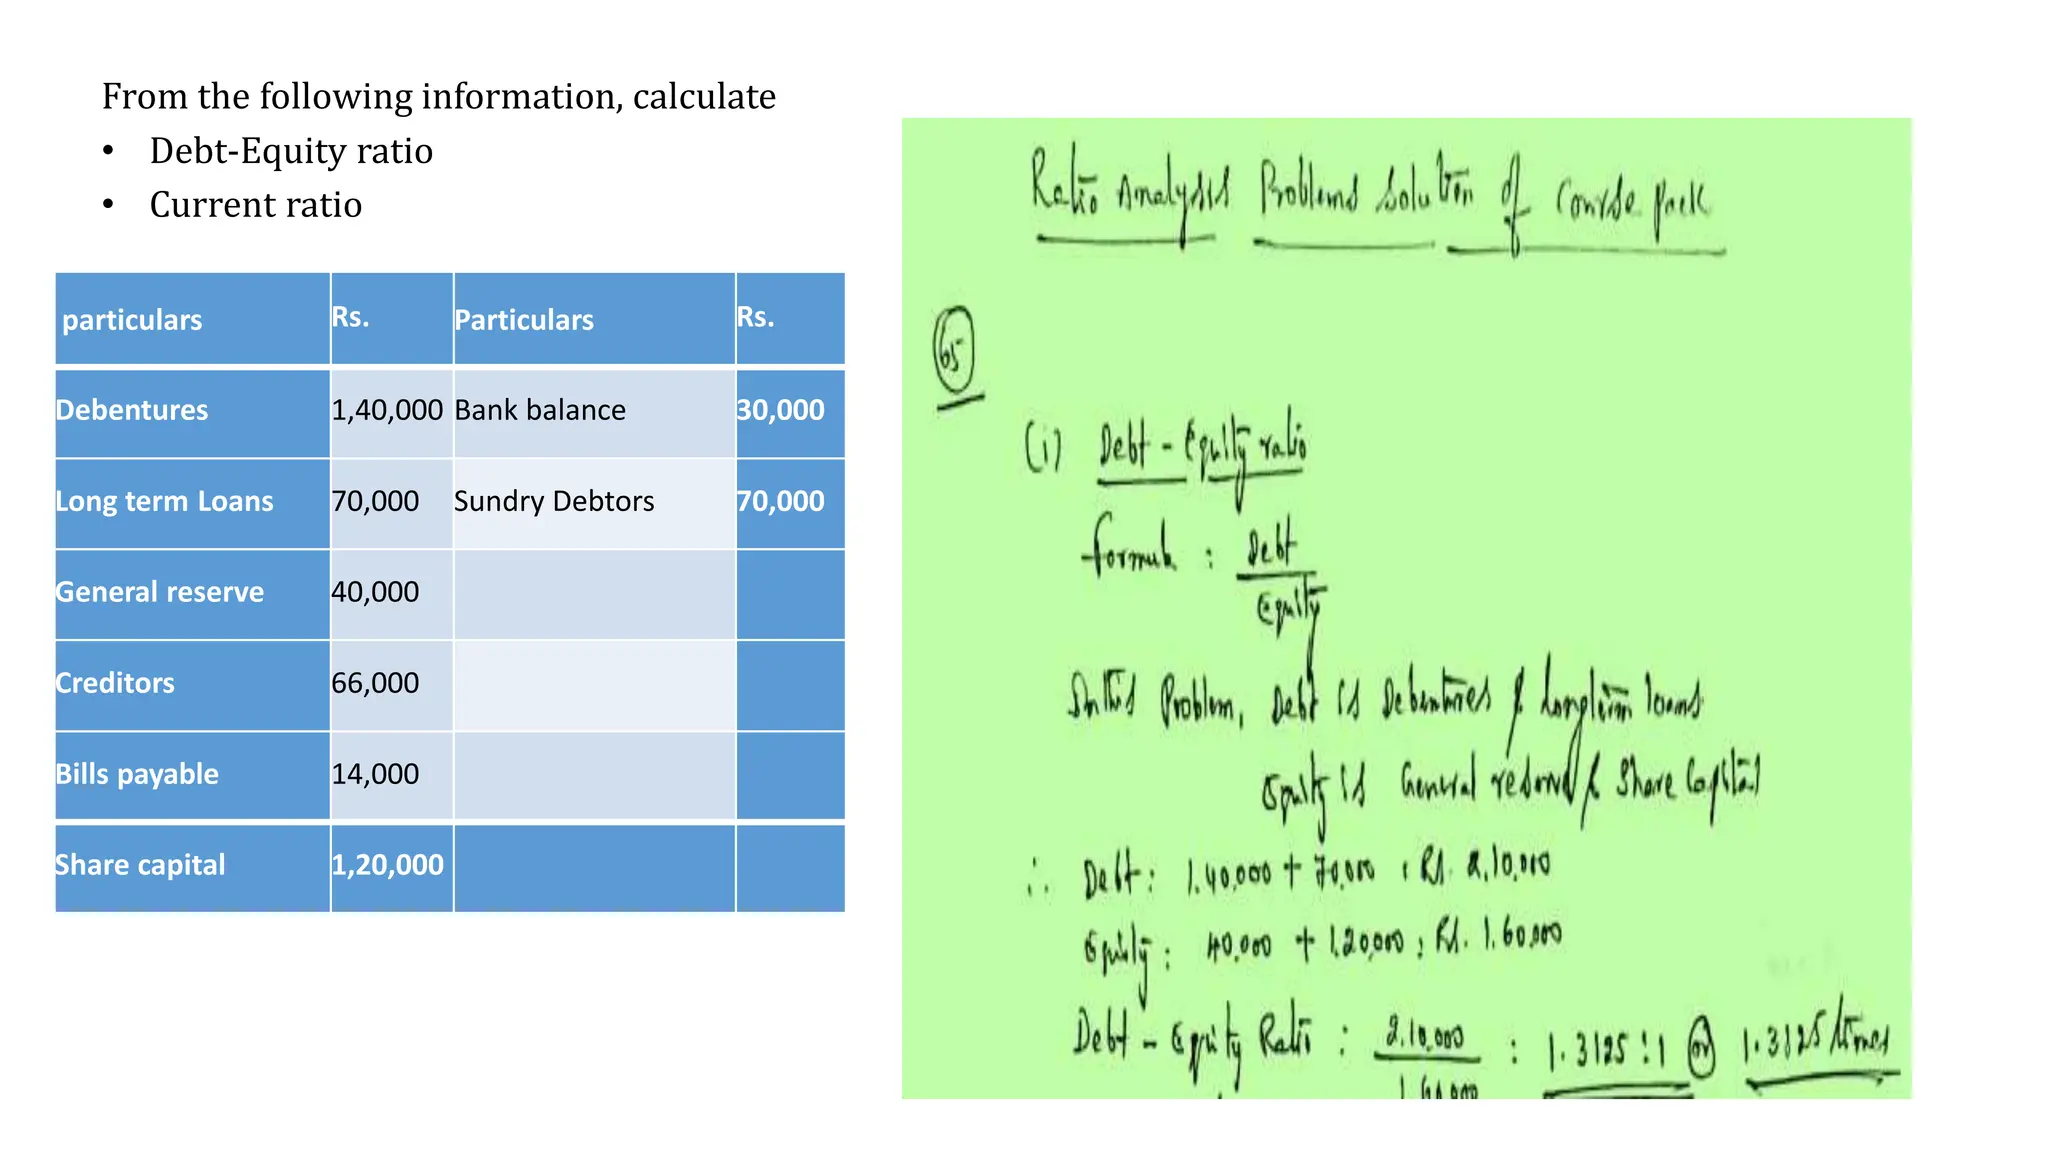 From the following information, calculate
• Debt-Equity ratio
• Current ratio
particulars Rs. Particulars Rs.
Debentures 1,40,000 Bank balance 30,000
Long term Loans 70,000 Sundry Debtors 70,000
General reserve 40,000
Creditors 66,000
Bills payable 14,000
Share capital 1,20,000
Ratio Analysis Problems Solution of Course pack
65
(i) Debt - Equity ratio
Formula : Debt
Equity
In this Problem, Debt is Debentures & Longterm loans
Equity is General reserve & Share Capital
∴ Debt : 1,40,000 + 70,000 : Rs. 2,10,000
Equity : 40,000 + 1,20,000 : Rs. 1,60,000
Debt - Equity Ratio : 2,10,000 : 1.3125 : 1 or 1.3125 times
1,60,000